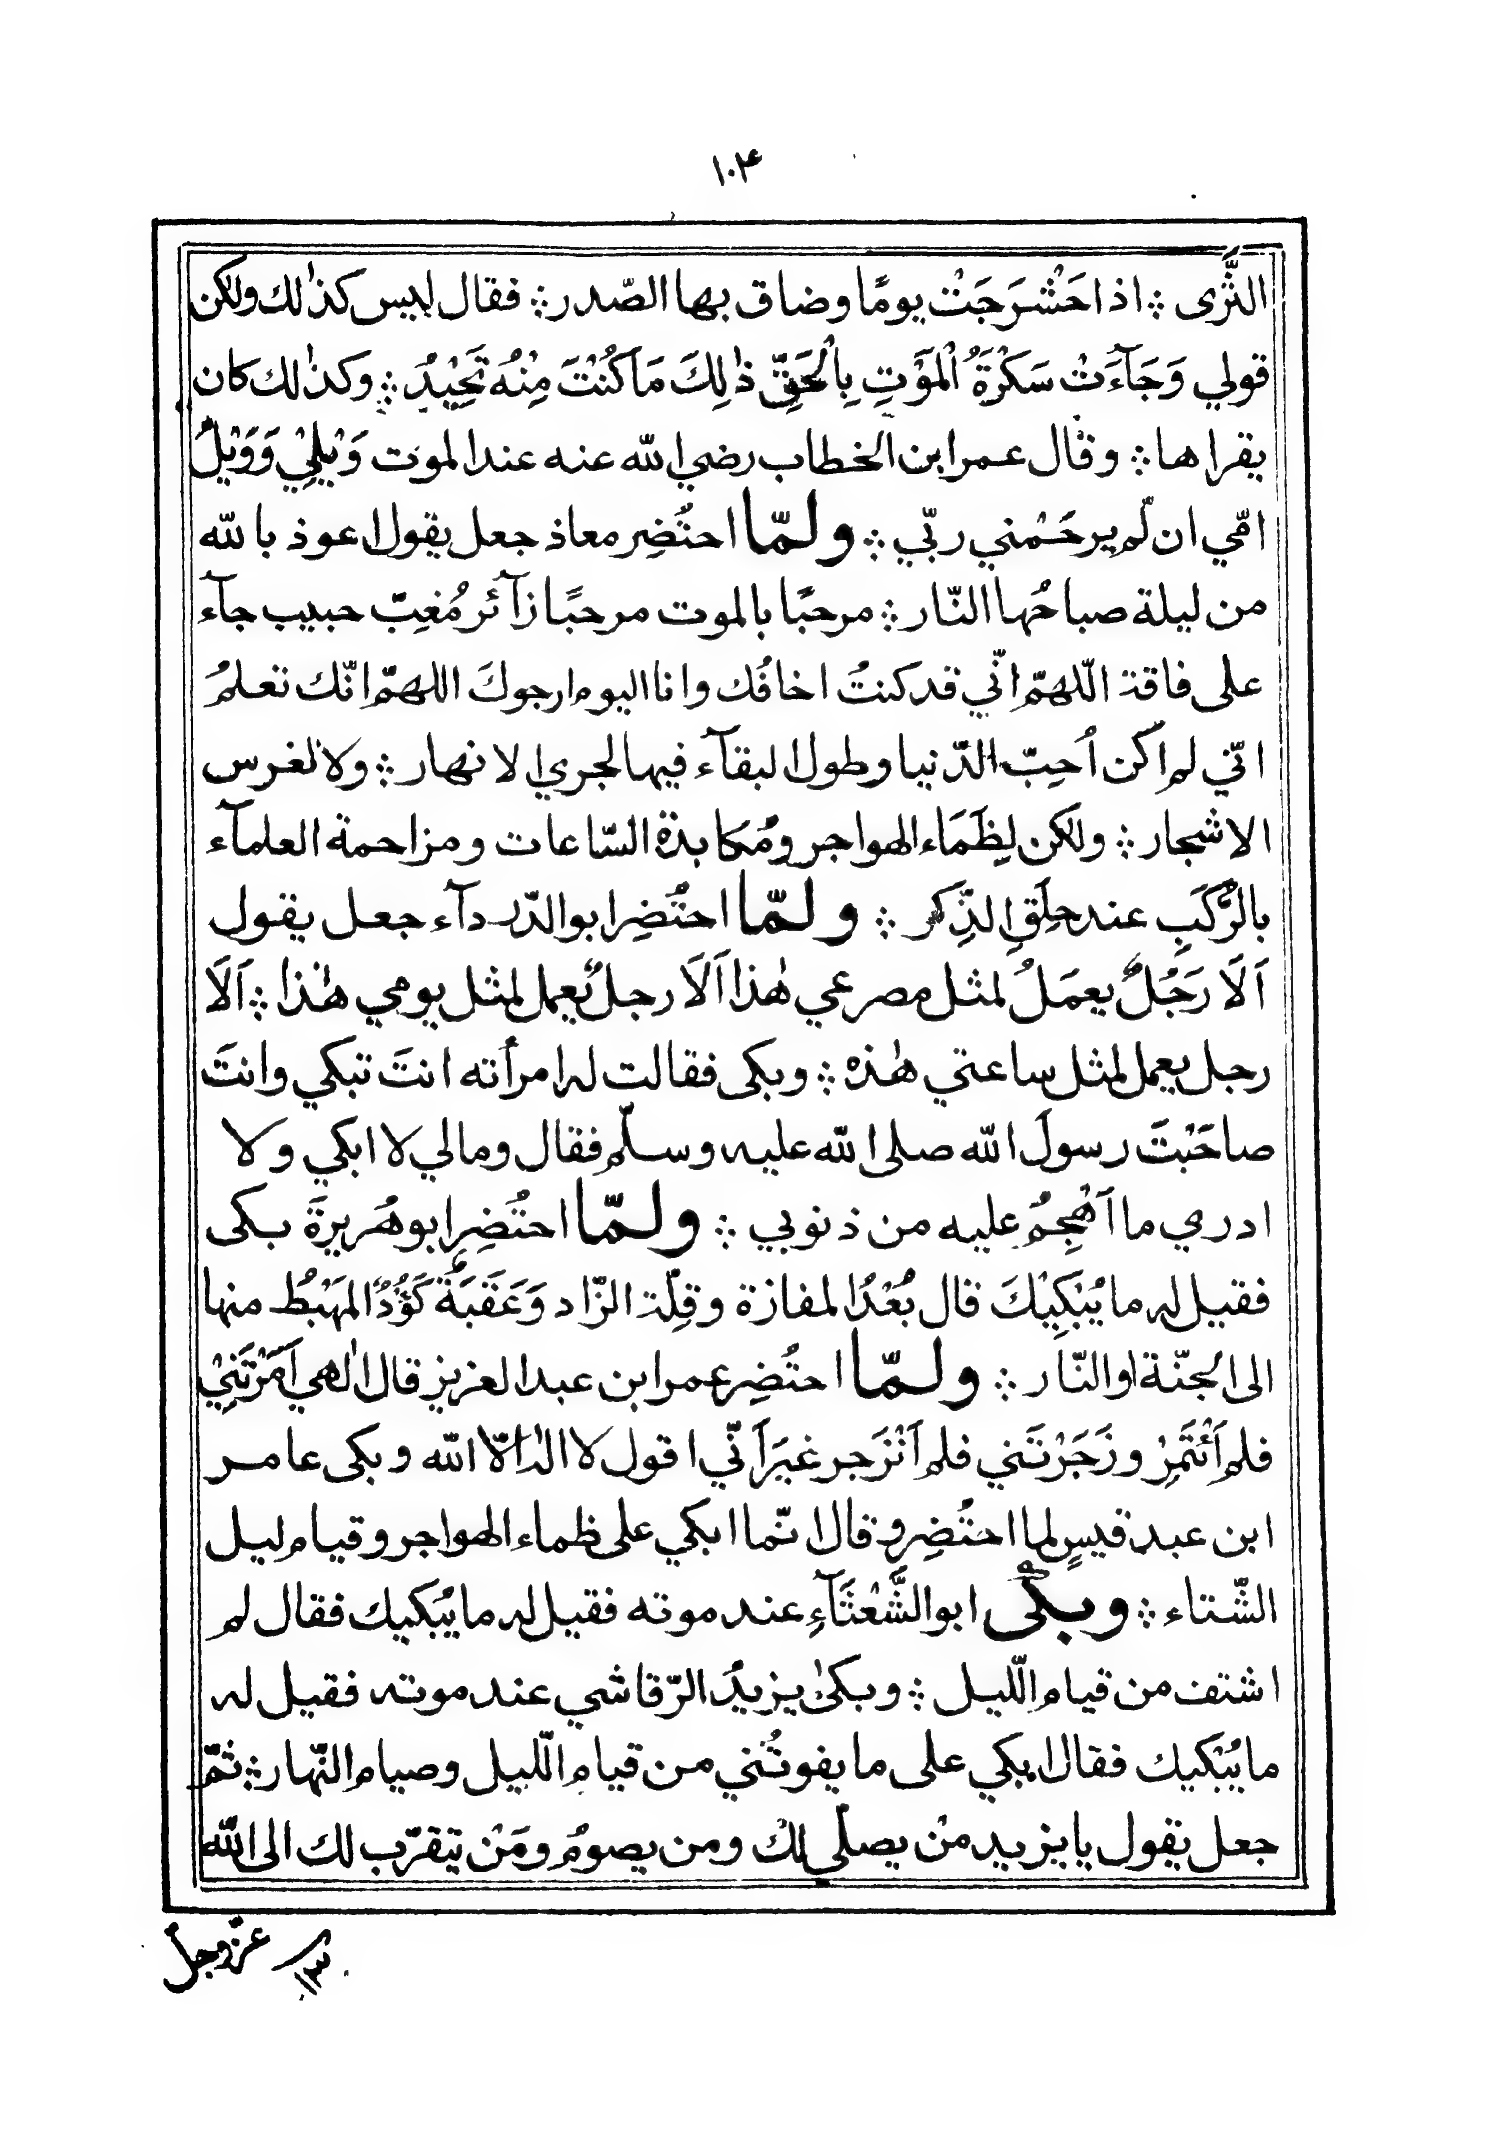 ١٠۴
الثَّرٰى ؞ اذا حَشْرَجَتْ يومًا وضاق بها الصّدر ؞ فقال ليس كذٰلك ولٰكن
قولي وَجَآءَتْ سَكْرَةُ الْمَوْتِ بِالْحَقِّ ذٰلِكَ مَا كُنْتَ مِنْهُ تَحِيْدُ ؞ وكذٰلك كان
يقراها ؞ وقال عمر ابن الخطاب رضي الله عنه عند الموت وَيْلِيْ وَوَيْلُ
امّي ان لّم يرحَمْني ربّي ؞ ولمّا احتُضِر معاذ جعل يقول اعوذ بالله
من ليلة صباحُها النّار ؞ مرحبًا بالموت مرحبًا زآئر مُغِبّ حبيب جآء
على فاقة اللّهمّ انّي قد كنتُ اخافُك وانا اليوم ارجوكَ اللهمّ انّك تعلمُ
انّي لم اكن اُحِبّ الدّنيا وطول البقآء فيها لجري الانهار ؞ ولا لغرس
الاشجار ؞ ولكن لِظَمَاء الهواجر ومُكابدة السّاعات ومزاحمة العلمآء
بالرُّكَبِ عند حِلَقِ الذِّكر ؞ ولمّا احتُضِر ابو الدّرداء جعل يقول
اَلَا رَجُلٌ يعمَلُ لمثل مصرعي هٰذا اَلَا رجلٌ يَعمل لمثل يومي هٰذا ؞ اَلَا
رجل يعمل لمثل ساعتي هٰذه ؞ وبكى فقالت له امرأته انتَ تبكي وانتَ
صاحَبْتَ رسولَ الله صلى الله عليه وسلّم فقال ومالي لا ابكي ولا
ادري ما اَهْجِمُ عليه من ذنوبي ؞ ولمّا احتُضِر ابو هُريرةَ بكى
فقيل له ما يُبْكِيْكَ قال بُعْدُ المفازة وقِلّة الزّاد وَعَقَبَةٌ كَؤُدٌ المَهْبُط منها
الى الجنّة او النّار ؞ ولمّا احتُضِر عمر ابن عبد العزيز قال الٰهي اَمَرْتَنِيْ
فلم اَئْتَمِرْ وزَجَرْتَني فلم اَنْزَجر غيرَ اَنّي اقول لا الٰه الّا الله وبكى عامر
ابن عبد قيسٍ لما احتُضِر وقال انّما ابكي على ظماء الهواجر وقيام ليل
الشّتاء ؞ وبكٰى ابو الشَّعْثَآءِ عند موته فقيل له ما يُبكيك فقال لم
اشتف من قيام اللّيل ؞ وبكىٰ يزيدُ الرّقاشي عند موته فقيل له
ما يُبْكيك فقال ابكي على ما يفوتُني من قيام اللّيل وصيام النّهار ؞ ثمّ
جعل يقول يا يزيد مَنْ يصلّي لك ومن يصومُ ومَنْ يتقرّب لك الى الله
عزّوجلّ